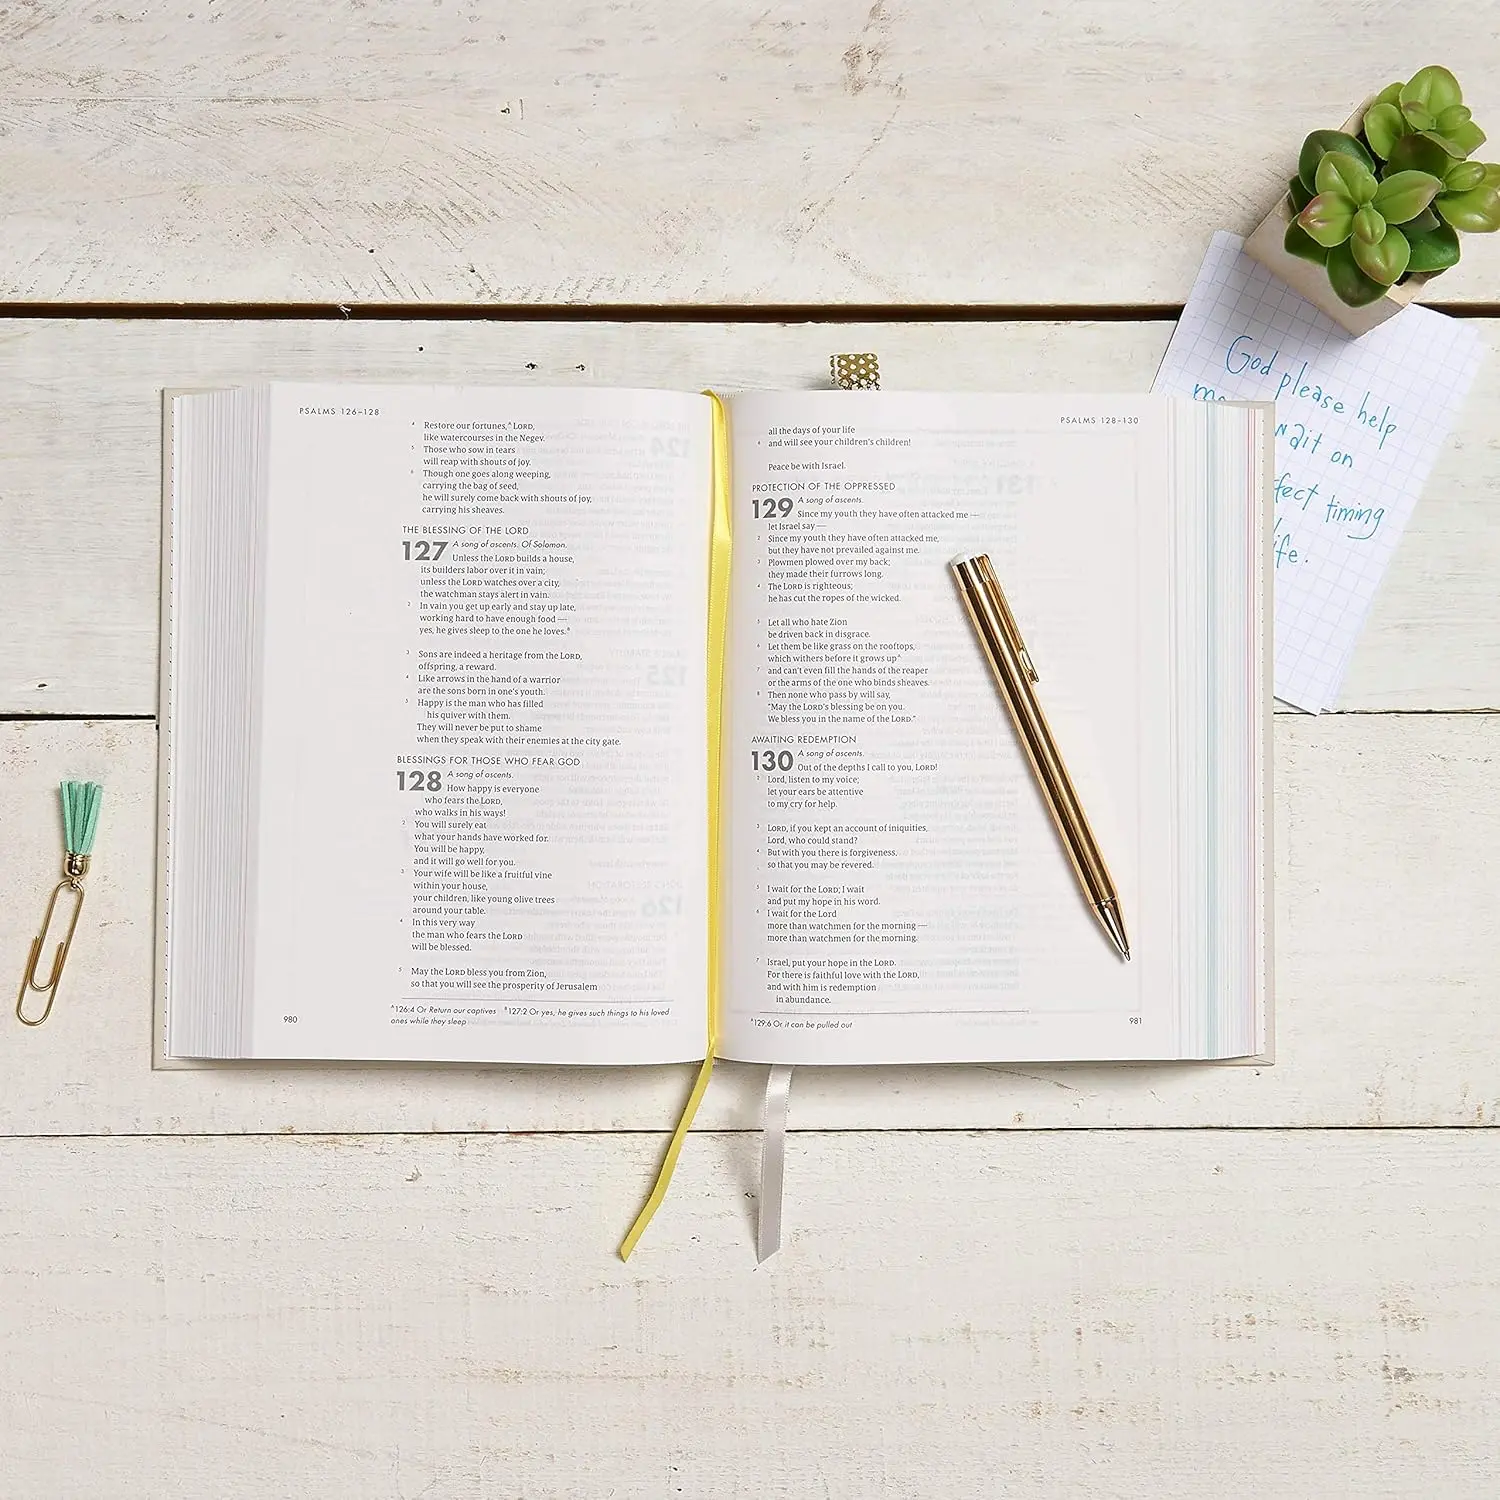 PSALMS 126–128
4 Restore our fortunes,ᴬ LORD,
like watercourses in the Negev.
5 Those who sow in tears
will reap with shouts of joy.
6 Though one goes along weeping,
carrying the bag of seed,
he will surely come back with shouts of joy,
carrying his sheaves.
THE BLESSING OF THE LORD
127 A song of ascents. Of Solomon.
Unless the LORD builds a house,
its builders labor over it in vain;
unless the LORD watches over a city,
the watchman stays alert in vain.
2 In vain you get up early and stay up late,
working hard to have enough food —
yes, he gives sleep to the one he loves.ᴮ
3 Sons are indeed a heritage from the LORD,
offspring, a reward.
4 Like arrows in the hand of a warrior
are the sons born in one's youth.
5 Happy is the man who has filled
his quiver with them.
They will never be put to shame
when they speak with their enemies at the city gate.
BLESSINGS FOR THOSE WHO FEAR GOD
128 A song of ascents.
How happy is everyone
who fears the LORD,
who walks in his ways!
2 You will surely eat
what your hands have worked for.
You will be happy,
and it will go well for you.
3 Your wife will be like a fruitful vine
within your house,
your children, like young olive trees
around your table.
4 In this very way
the man who fears the LORD
will be blessed.
5 May the LORD bless you from Zion,
so that you will see the prosperity of Jerusalem
ᴬ126:4 Or Return our captives ᴮ127:2 Or yes, he gives such things to his loved
ones while they sleep
980
PSALMS 128–130
all the days of your life
6 and will see your children's children!
Peace be with Israel.
PROTECTION OF THE OPPRESSED
129 A song of ascents.
Since my youth they have often attacked me —
let Israel say —
2 Since my youth they have often attacked me,
but they have not prevailed against me.
3 Plowmen plowed over my back;
they made their furrows long.
4 The LORD is righteous;
he has cut the ropes of the wicked.
5 Let all who hate Zion
be driven back in disgrace.
6 Let them be like grass on the rooftops,
which withers before it grows upᴬ
7 and can't even fill the hands of the reaper
or the arms of the one who binds sheaves.
8 Then none who pass by will say,
"May the LORD's blessing be on you.
We bless you in the name of the LORD."
AWAITING REDEMPTION
130 A song of ascents.
Out of the depths I call to you, LORD!
2 Lord, listen to my voice;
let your ears be attentive
to my cry for help.
3 LORD, if you kept an account of iniquities,
Lord, who could stand?
4 But with you there is forgiveness,
so that you may be revered.
5 I wait for the LORD; I wait
and put my hope in his word.
6 I wait for the Lord
more than watchmen for the morning —
more than watchmen for the morning.
7 Israel, put your hope in the LORD.
For there is faithful love with the LORD,
and with him is redemption
in abundance.
ᴬ129:6 Or it can be pulled out
981
God please help
wait on
timing